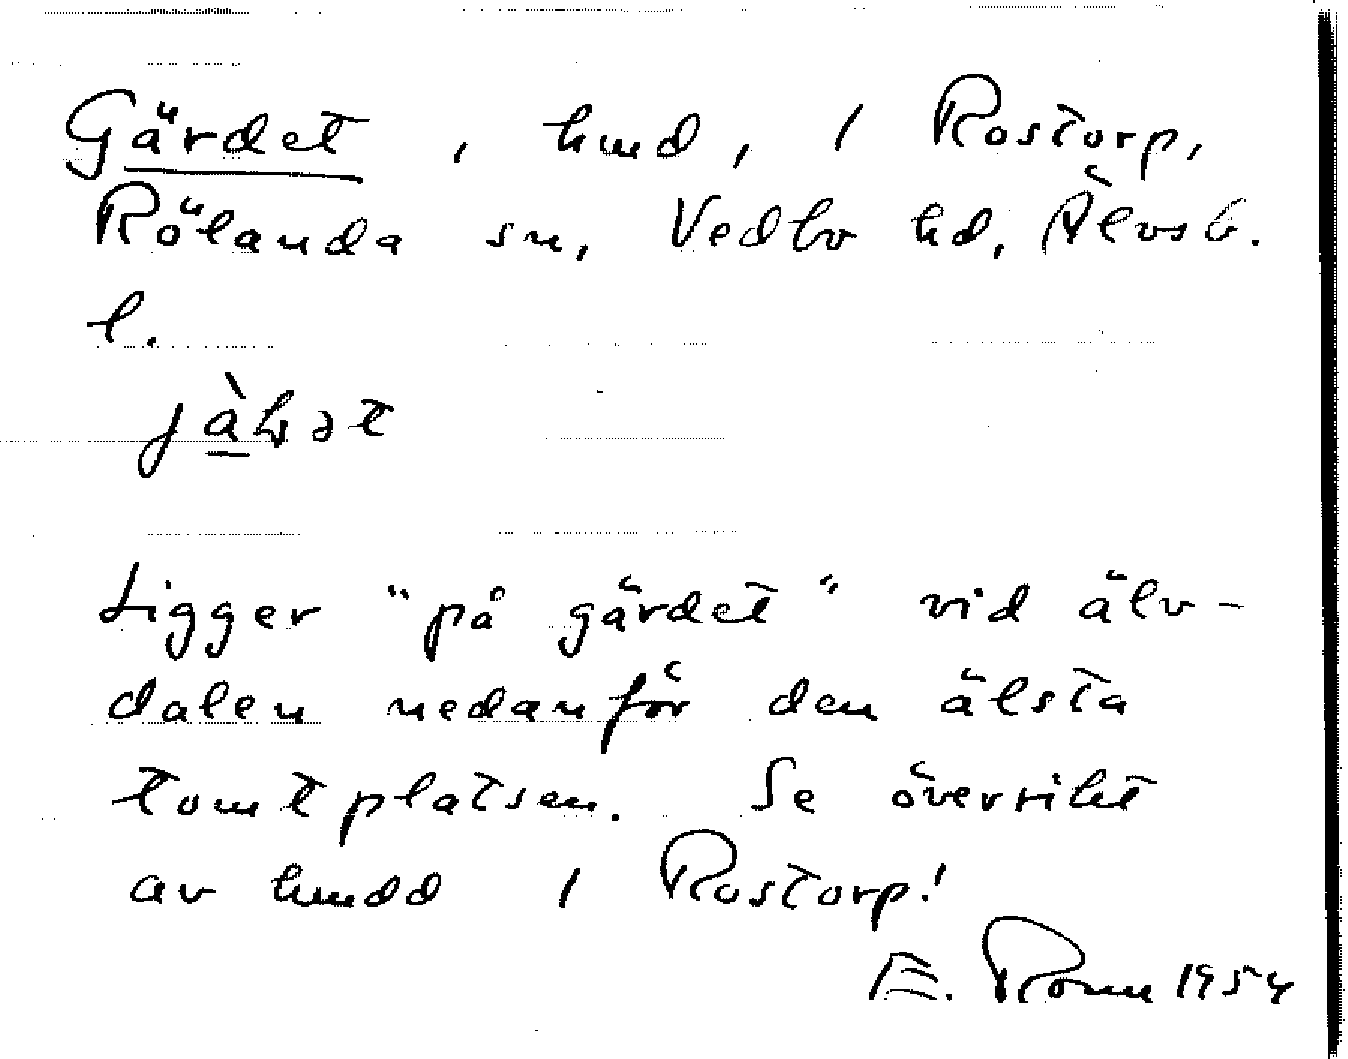 Gärdet, hmd, i Rostorp,
Rölanda sn, Vedbo hd, Älvsb.
l.
Ligger "på gärdet" vid älv-
dalen nedanför den älsta
tomtplatsen. Se översikt
av hmdd i Rostorp!
E. Ronn 1954